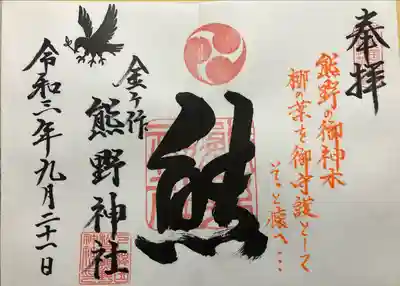 奉拝
熊野の御神木
梛の葉を御守護として
そっと懐へ…
熊
金ヶ作
熊野神社
令和三年九月二十一日